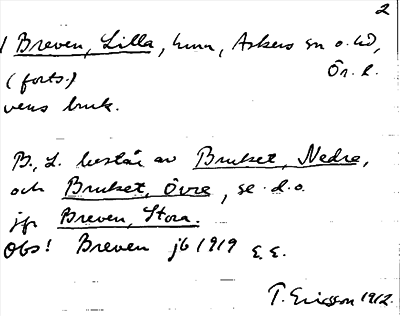 2
Breven, Lilla, hmn, Askers sn o. hd,
(forts.) Ör. l.
vens bruk.
B., L. består av Bruket, Nedre,
och Bruket, Övre, se d.o.
jfr Breven, Stora.
Obs! Breven jb 1919 E.E.
T. Ericsson 1912.